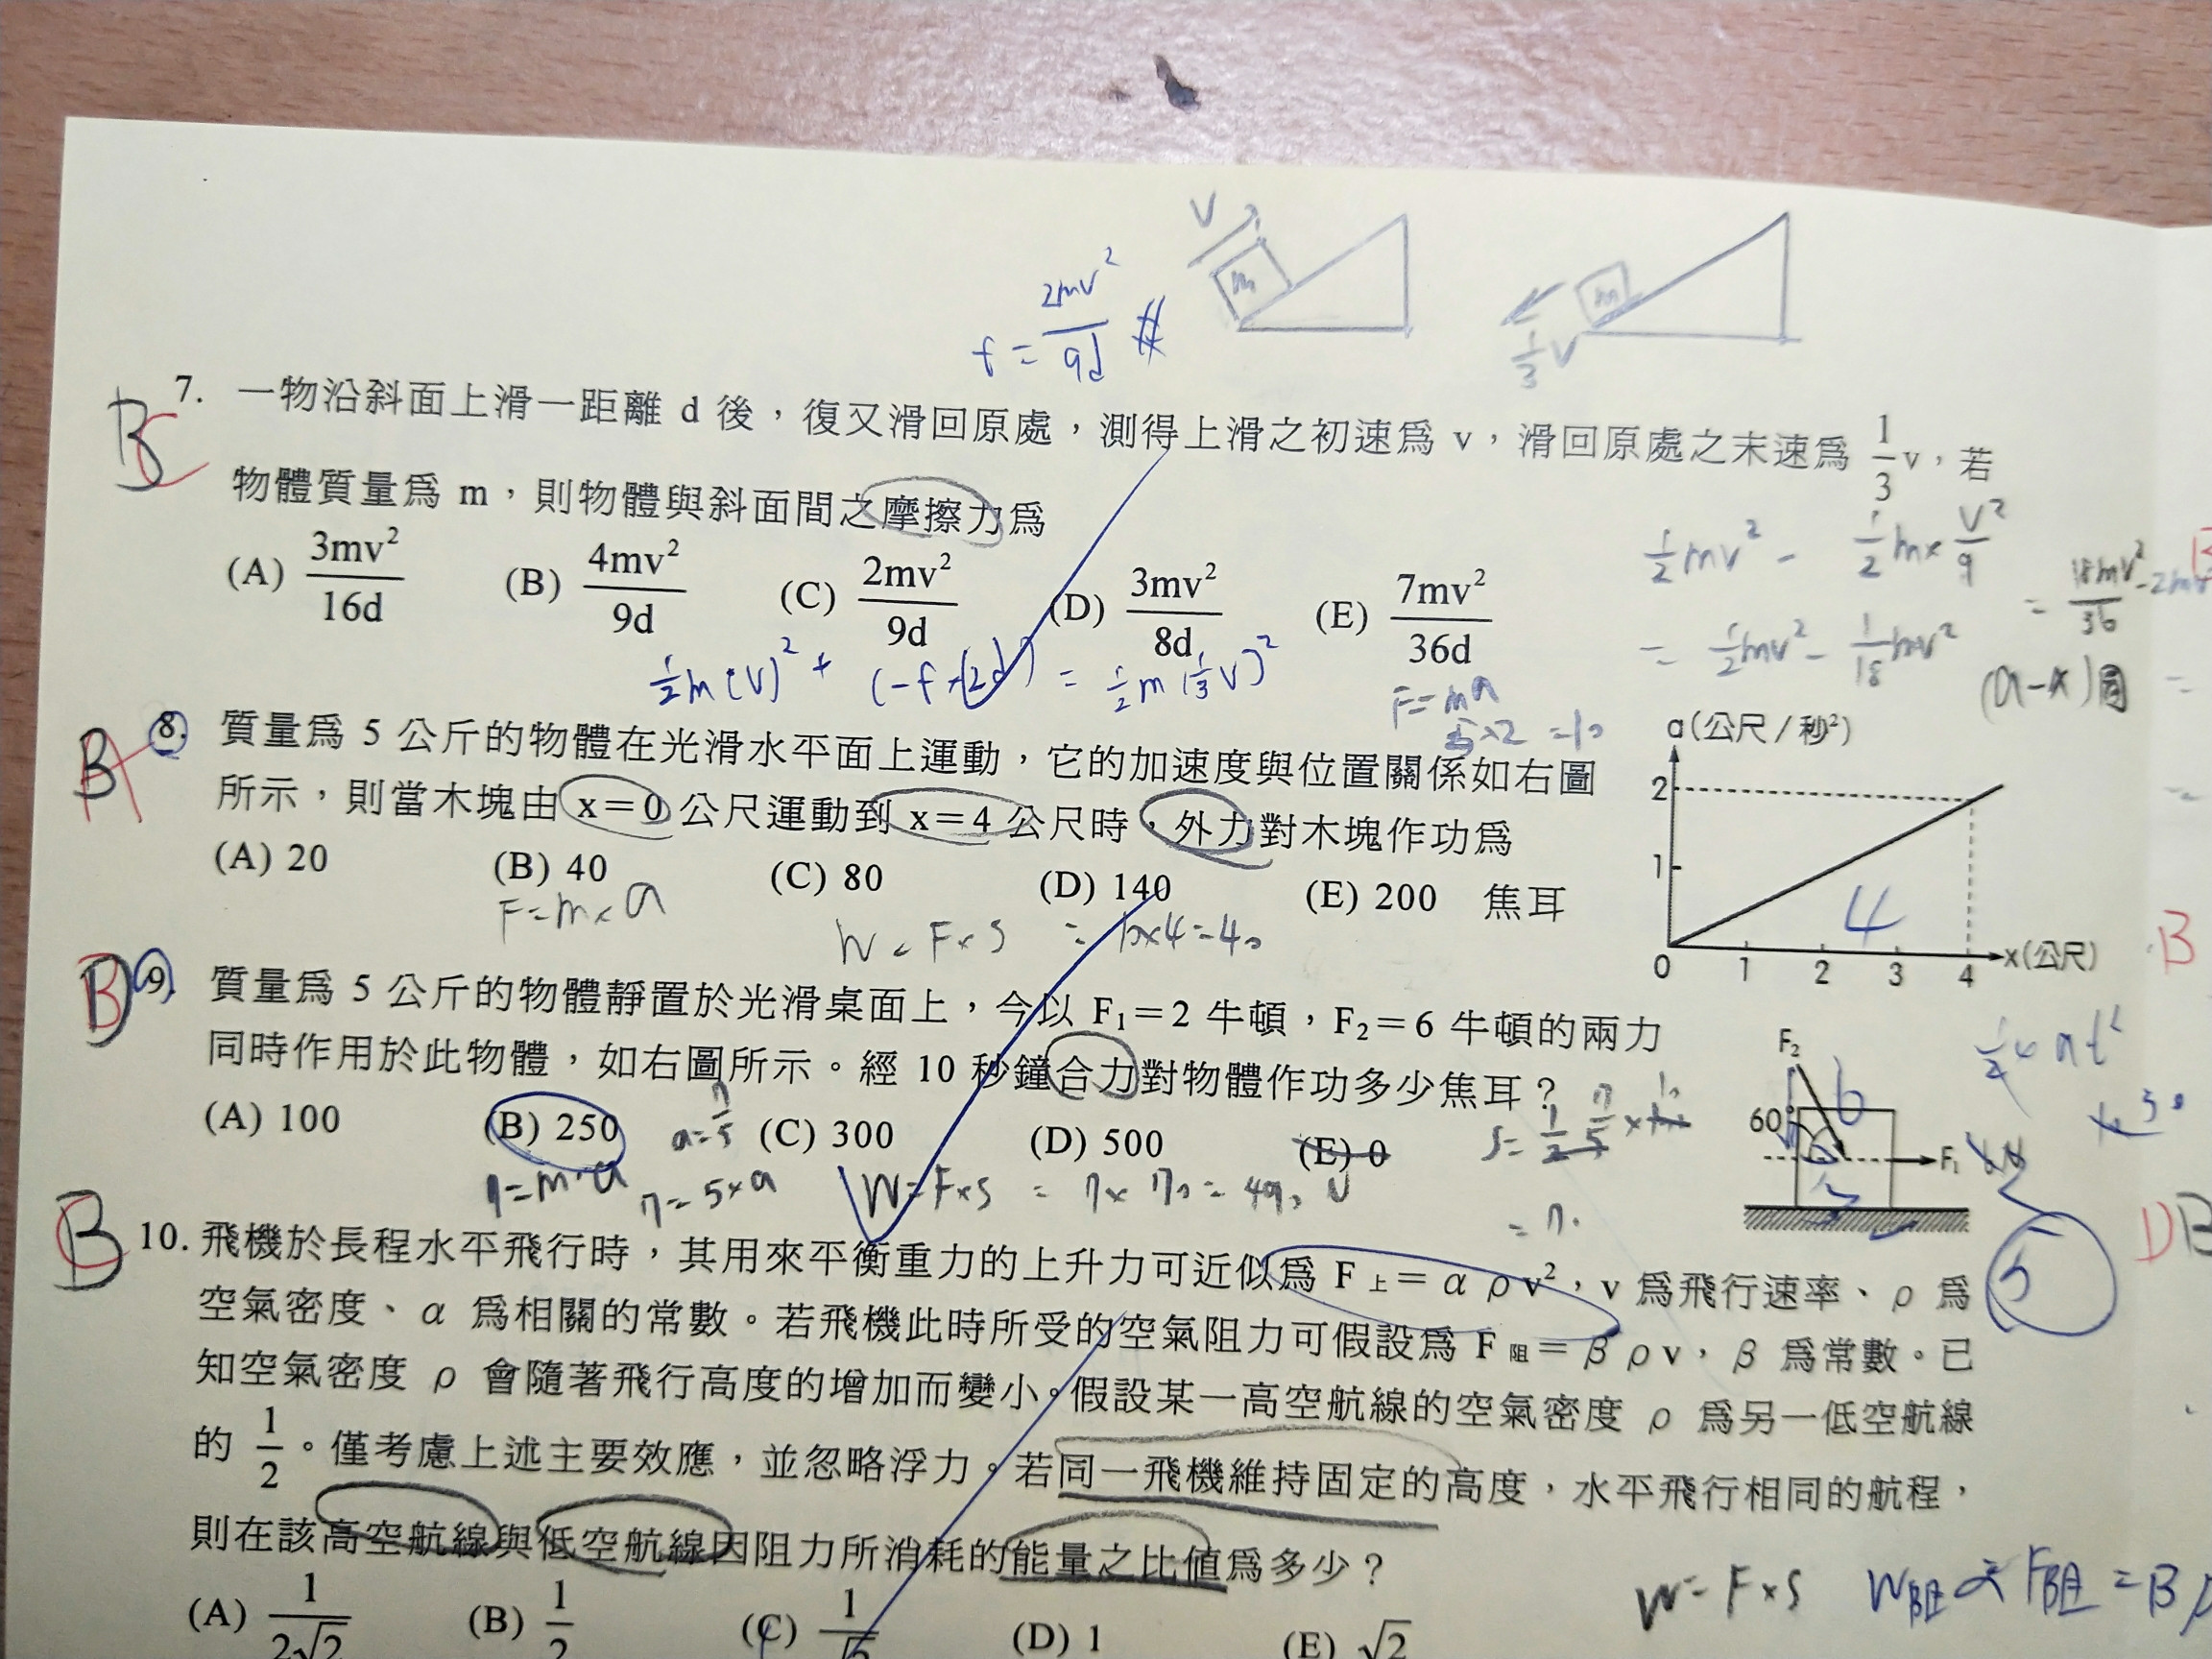 f = 2mv²/9d #
V
m
m
1/3 V
BC
7. 一物沿斜面上滑一距離 d 後，復又滑回原處，測得上滑之初速為 v，滑回原處之末速為 1/3 v，若
物體質量為 m，則物體與斜面間之摩擦力為
(A) 3mv²/16d (B) 4mv²/9d (C) 2mv²/9d (D) 3mv²/8d (E) 7mv²/36d
½mv² - ½m×V²/9
= ½mv² - 1/18 mv²
= 18mv²-2mv²/36
½m(V)² + (-f×(2d)) = ½m(⅓V)²
F=ma
5×2=10
BA
8. 質量為 5 公斤的物體在光滑水平面上運動，它的加速度與位置關係如右圖
所示，則當木塊由 x＝0 公尺運動到 x＝4 公尺時，外力對木塊作功為
(A) 20 (B) 40 (C) 80 (D) 140 (E) 200 焦耳
F=m×a
W=F×S = 10×4=40
a(公尺／秒²)
2
1
0 1 2 3 4 x(公尺)
4
B
9. 質量為 5 公斤的物體靜置於光滑桌面上，今以 F₁＝2 牛頓，F₂＝6 牛頓的兩力
同時作用於此物體，如右圖所示。經 10 秒鐘合力對物體作功多少焦耳？
(A) 100 (B) 250 (C) 300 (D) 500 (E) 0
a=7/5
7=m·a
7=5×a
W=F×S = 7×70=490
= 70
F₂
60°
F₁
6
½×at²
5
DB
CB
10. 飛機於長程水平飛行時，其用來平衡重力的上升力可近似為 F上＝αρv²，v 為飛行速率、ρ 為
空氣密度、α 為相關的常數。若飛機此時所受的空氣阻力可假設為 F阻＝βρv，β 為常數。已
知空氣密度 ρ 會隨著飛行高度的增加而變小。假設某一高空航線的空氣密度 ρ 為另一低空航線
的 1/2。僅考慮上述主要效應，並忽略浮力。若同一飛機維持固定的高度，水平飛行相同的航程，
則在該高空航線與低空航線因阻力所消耗的能量之比值為多少？
(A) 1/2√2 (B) 1/2 (C) 1/√2 (D) 1 (E) √2
W=F×S W阻∝F阻=β